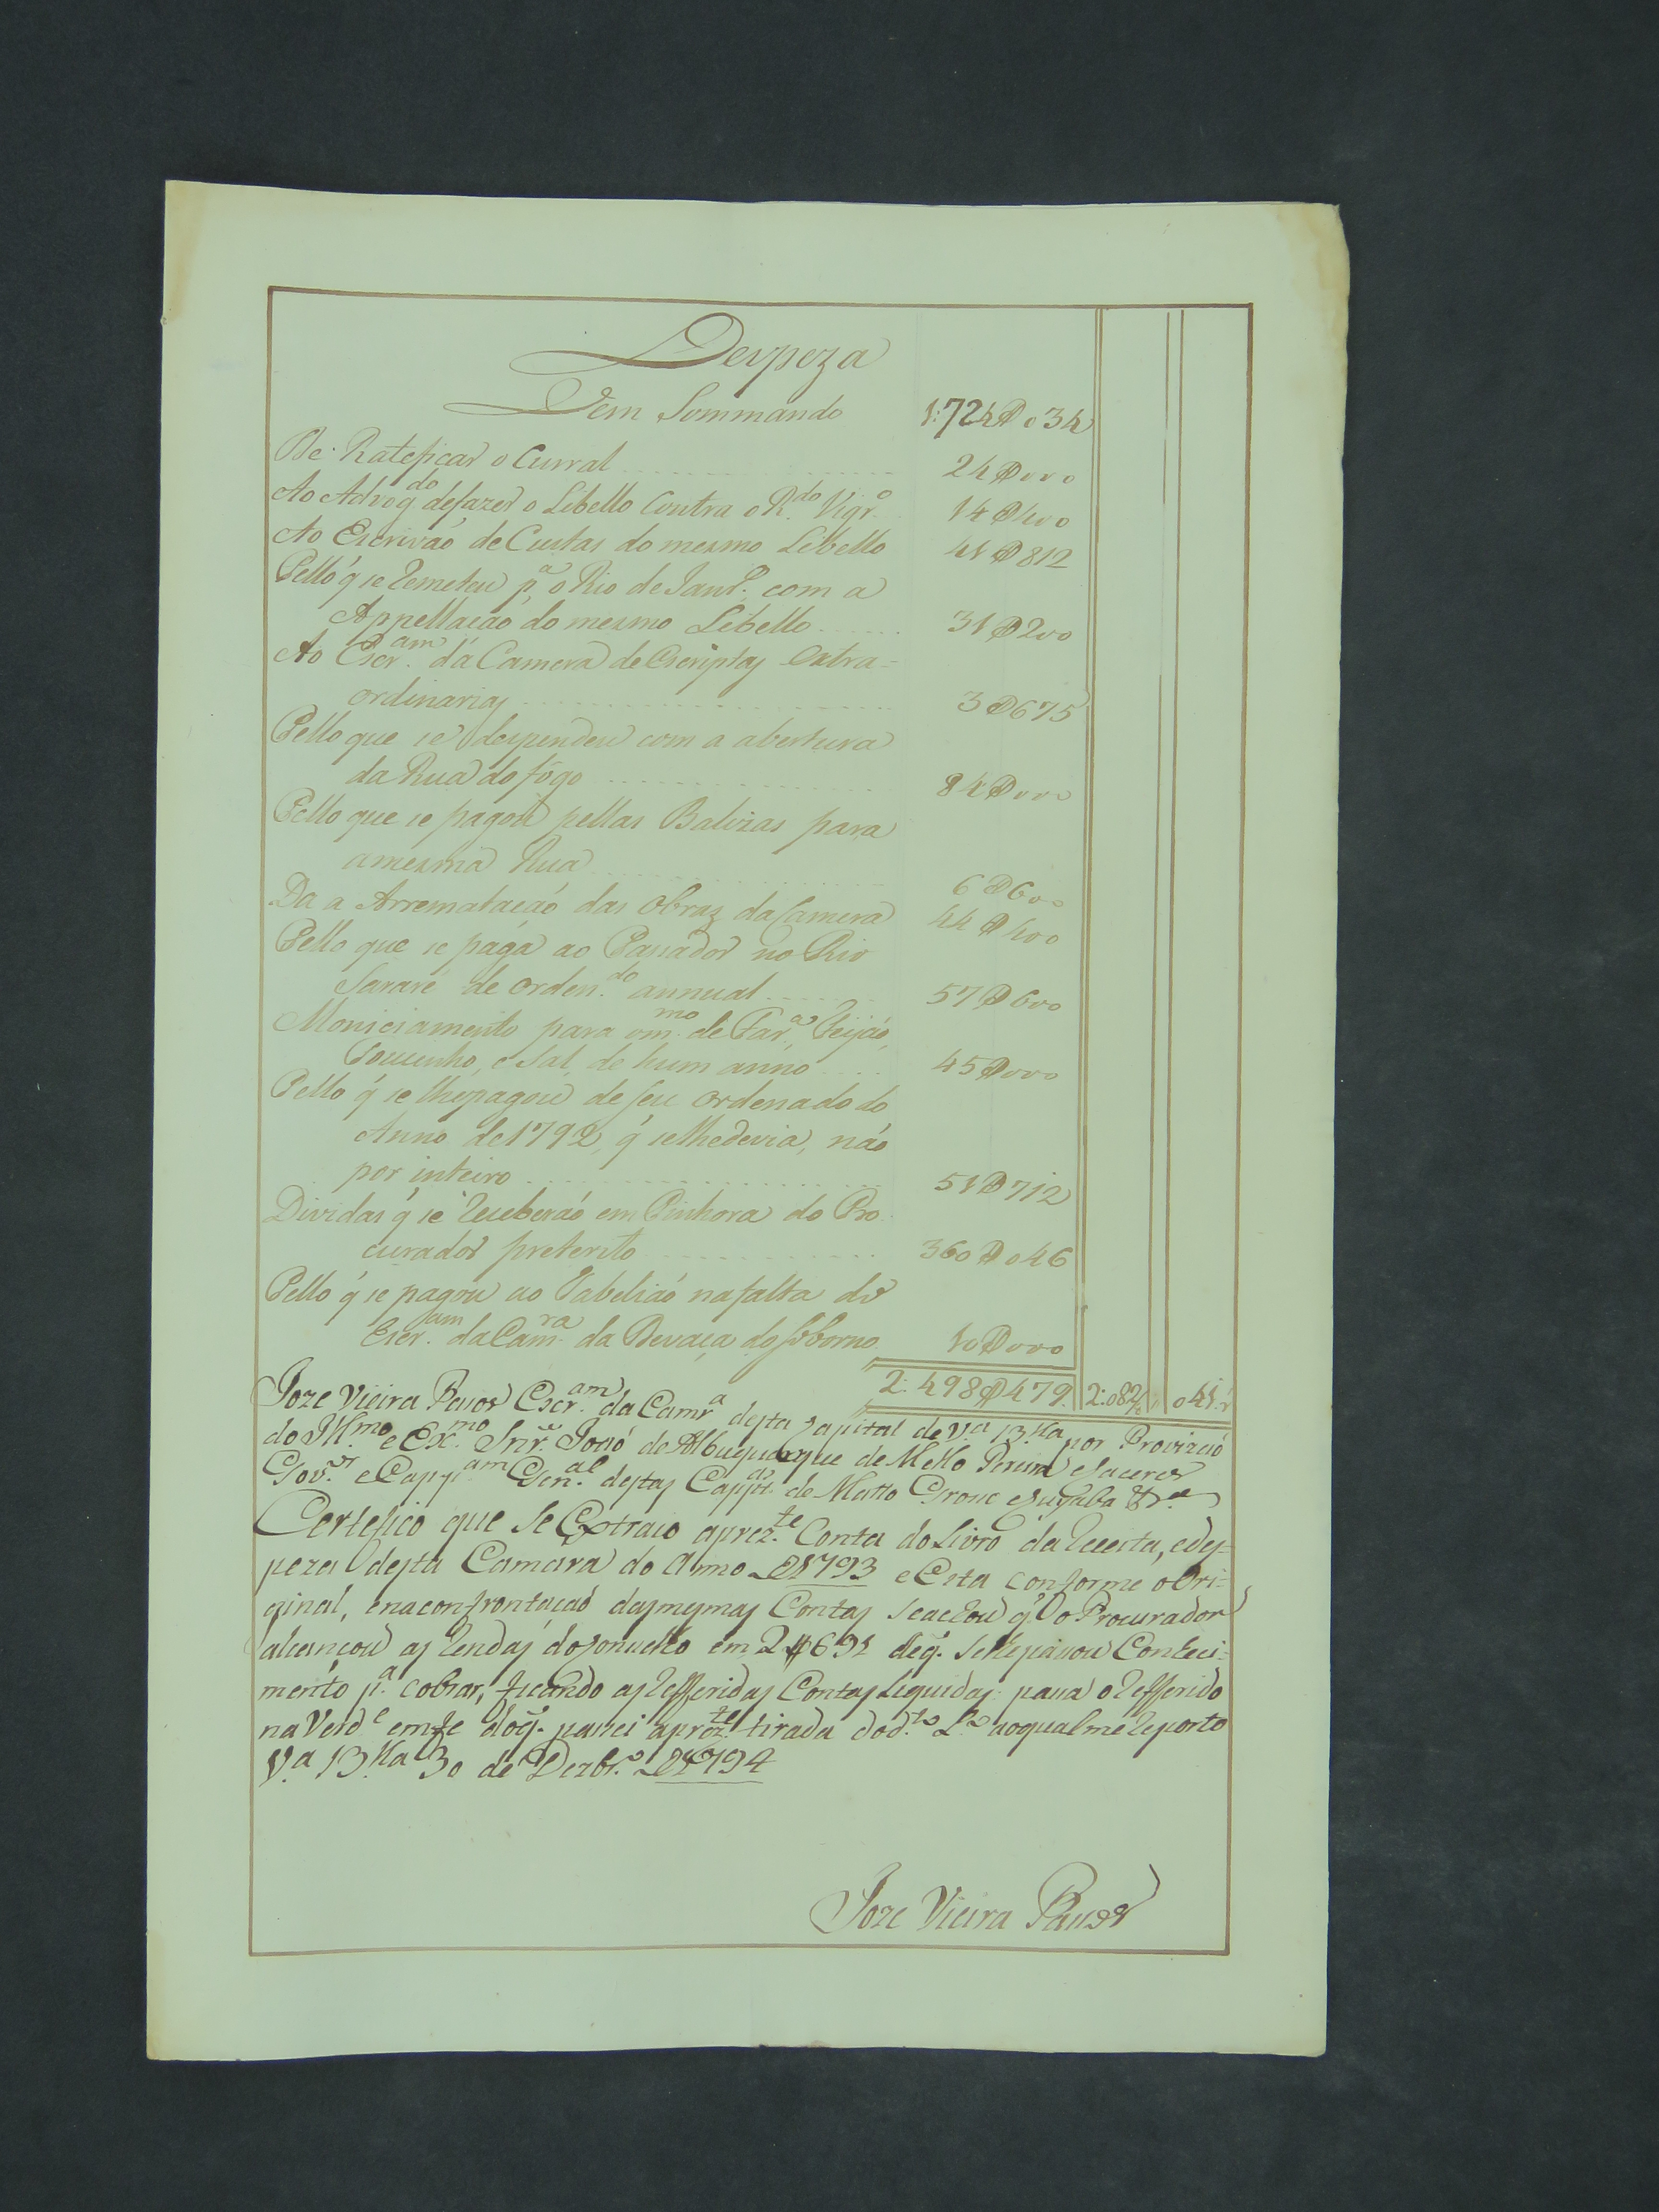 Despeza
Vem Sommando 1:724$034
De Rateficar o Curral 24$000
Ao Advog.do defazer o Libello Contra o R.do Vigr.o 14$400
Ao Escrivaõ de Custas do mesmo Libello 41$812
Pello q̃ se Remeteu p.a o Rio de Janr.o com a
Appellaçaõ do mesmo Libello 31$200
Ao Escr.am da Camera de Escriptas Extra-
ordinarias 3$675
Pello que se despendeu com a abertura
da Rua do fogo 84$000
Pello que se pagou pellas Balizas para
amesma Rua 6$600
Da a Arremataçaõ das Obras da Camera 44$400
Pello que se paga ao Passador no Rio
Sararé de orden.do annual 57$600
Moniciamento para om.mo de Far.a Feijaõ,
Toucinho, e Sal, de hum anno 45$000
Pello q̃ se lhepagou de seu ordenado do
Anno de 1792, q̃ selhedevia, naõ
por inteiro 51$712
Dividas q̃ se Receberaõ em Penhora do Pro
curador preterito 360$046
Pello q̃ se pagou ao Tabeliaõ nafalta do
Escr.am daCam.ra da Devaça do soborno 10$000
2:498$479
Joze Vieira Passos Escr.am da Camr.a desta Capital de V.a B.lla por Provizaõ
do Ill.mo e Ex.mo Snr. Joaõ de Albuquerque de Mello Pereira eCaceres
Gov.or e Capp.am Gen.al destas Capp.as de Matto Grosso eCuyaba &.a
Certefico que se Extraio aprez.te Conta do Livro da Receita, edes-
peza desta Camara do Anno D1793 e Esta conforme o Ori-
ginal, enaconfrontaçaõ dasmesmas Contas seachou q̃ o Procurador
alcançou as Rendas doConcelho em 2$691 deq̃. selhepassou Conheci-
mento p.a cobrar, ficando as Refferidas Contas Liquidas: passa o Refferido
naVerd.e emfe doq̃. passei aprez.te tirada dod.to L.o aoqual me Reporto
V.a B.lla 30 de Dezbr.o D1794
Joze Vieira Passos